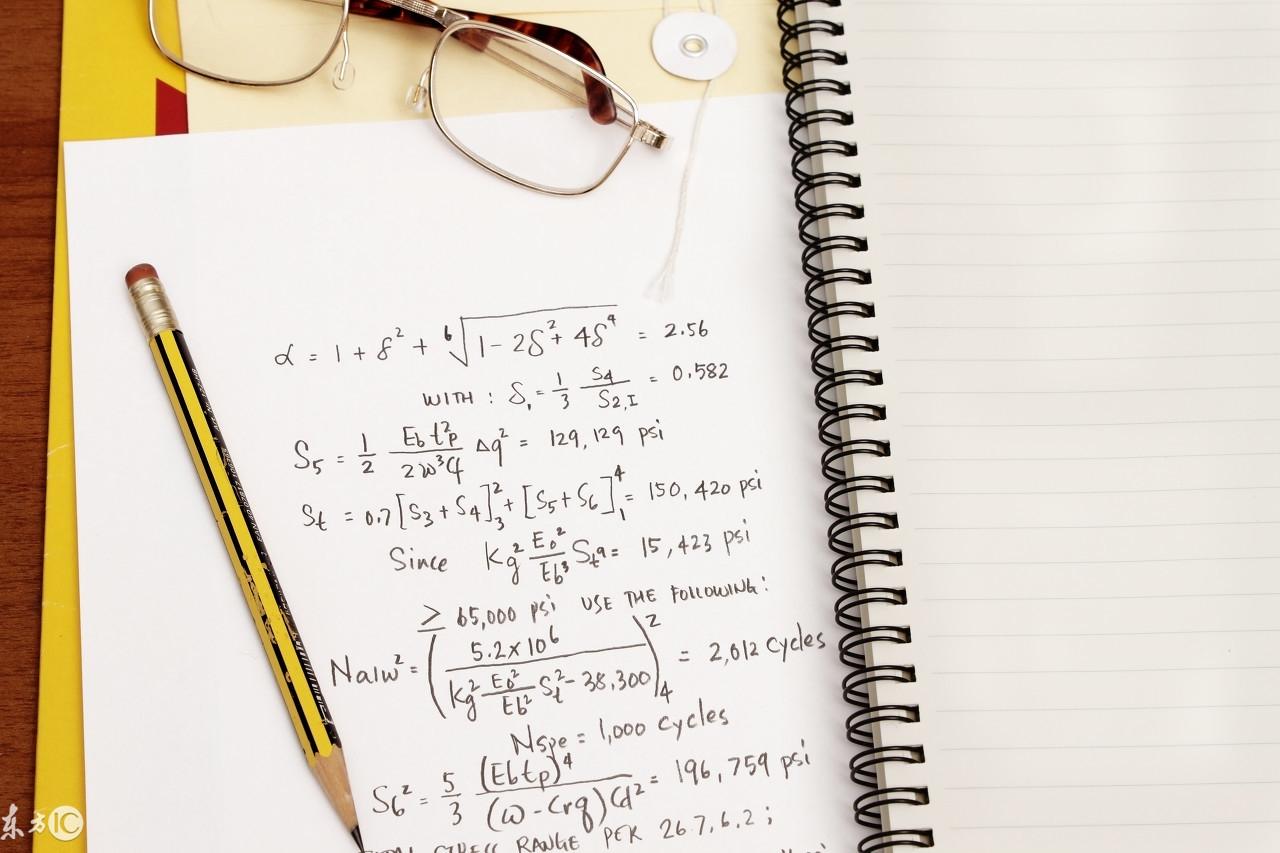 α = 1 + δ² + ⁶√(1 - 2δ² + 4δ⁴) = 2.56
WITH : δ₁ = 1/3 S4/S2,I = 0.582
S₅ = 1/2 Eb t²p / 2w³Cf Δq² = 129,129 psi
St = 0.7[S3 + S4]²₃ + [S5 + S6]⁴₁ = 150,420 psi
Since Kg² Eo²/Eb³ St^q = 15,423 psi
≥ 65,000 psi USE THE FOLLOWING:
Nalw² = (5.2 x 10⁶ / Kg² Eo²/Eb² St² - 38,300)²₄ = 2,012 cycles
Nspe = 1,000 cycles
S6² = 5/3 (Eb tp)⁴ / (w - Crq) Cd² = 196,759 psi
STRESS RANGE PER 26.7.6.2 ;
东方IC